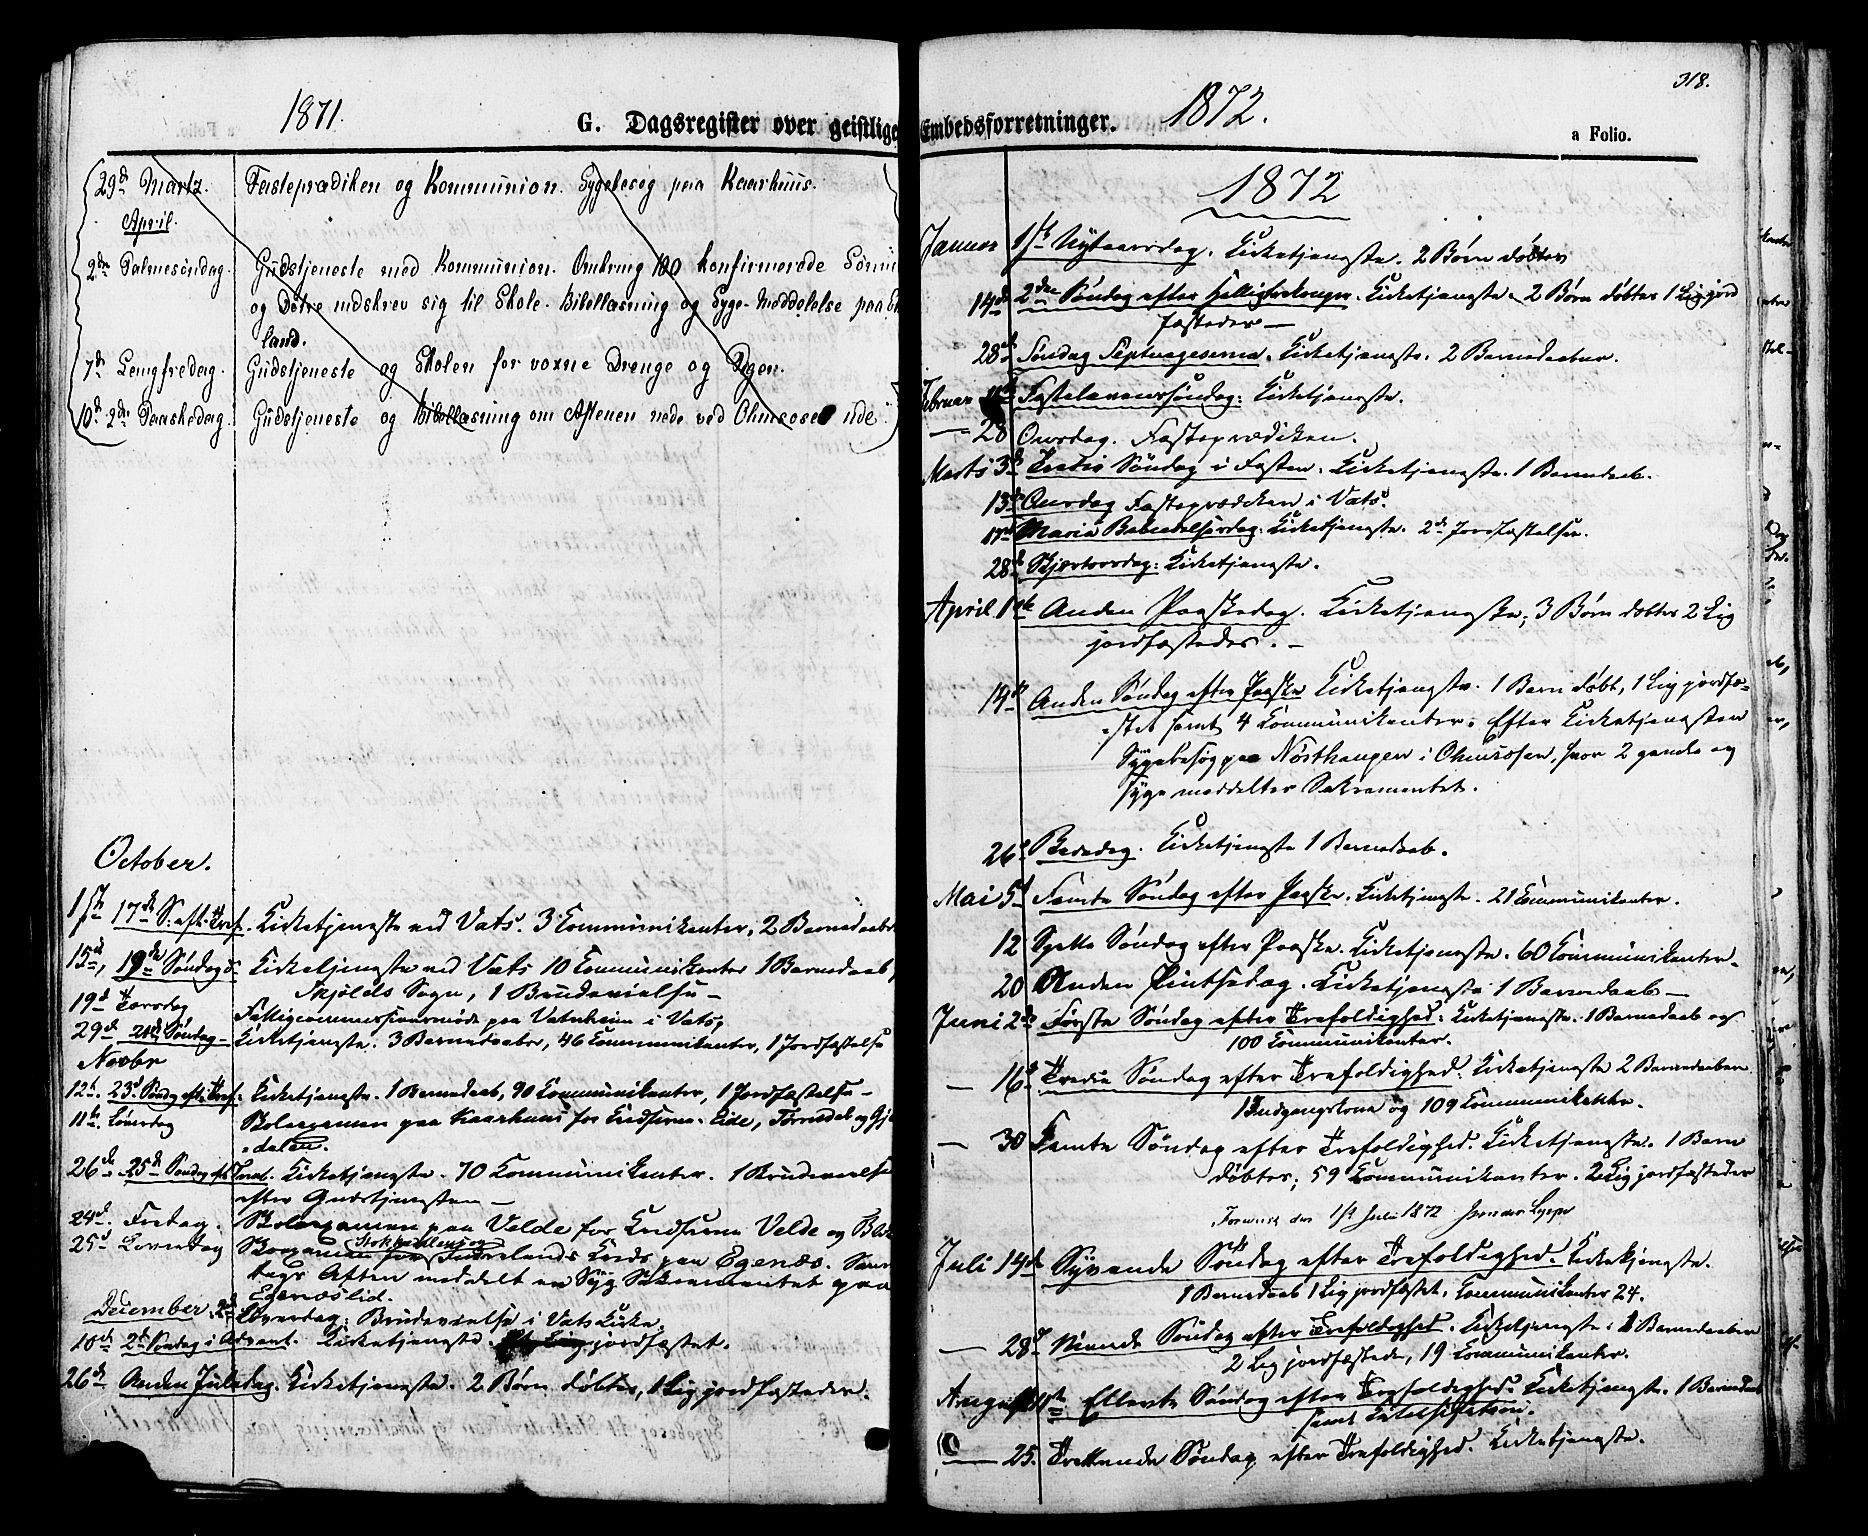 1871.
G. Dagsregister over geistlige
29d Martz. Fasteprædiken og Kommunion. Sygebesøg paa Kaarhuus.
April.
2den Palmesøndag. Gudstjeneste med Kommunion. Omkring 100 konfirmerede Sønner
og Døtre indskrev sig til Skole. Bibellæsning og Syge-Meddelelse paa
land.
7d Langfredag. Gudstjeneste og Skolen for voxne Drenge og Pigen.
10d 2den Paaskedag. Gudstjeneste og Bibellæsning om Aftenen nede ved Ølmedosen
October.
1ste 17de S. aft. Tref. Kirketjeneste ved Vats. 3 Kommunikanter, 2 Barnedaab
15d, 19de Søndag Kirketjeneste ved Vats 10 Kommunikanter 1 Barnedaab
Skjolds Sogn, 1 Brudevielse –
19d Torsdag Fattigcommissionsmøde paa Vatsheim i Vats,
29d 21de Søndag – Kirketjeneste. 3 Barnedaaber, 46 Communikanter, 1 Jordfæstelse
Novbr
12te 23d Søndag eft. Tref. Kirketjeneste. 1 Barnedaab, 90 Communikanter, 1 Jordfæstelse –
11te Løverdag Skoleexamen paa Kaarhuus for Eide,
dalen.
26de 25de Søndag eft Kirketjeneste. 70 Communikanter. 1 Brudevielse
efter Gudstjenesten –
24d. Fredag. Skoleexamen paa Velde for Kredserne Velde og
25d Løverdag Kreds paa Egenæs.
Aften meddelt en Syg Sakramentet paa
Egenæslid.
December 2d Løverdag. Brudevielse i Vats Kirke.
10de 2d Søndag i Advent. Kirketjeneste. jordfæstet.
26de Anden Juledag. Kirketjeneste. 2 Børn døbtes, 1 Lig jordfæstedes.
318.
1872.
Embedsforretninger.
a Folio.
1872
Januar 1ste Nytaarsdag. Kirketjeneste. 2 Børn døbtes
14de 2den Søndag efter Helligtrekonger. Kirketjeneste. 2 Børn døbtes 1 Lig jord
fæstedes –
28de Søndag Septuagesima. Kirketjeneste. 2 Barnedaaber.
Februar 11te Fastelavenssøndag: Kirketjeneste.
— 28 Onsdag. Fasteprædiken.
Marts 3d Tredie Søndag i Fasten. Kirketjeneste. 1 Barnedaab.
13de Onsdag Fasteprædiken i Vats.
17de Mariæ Bebudelsesdag. Kirketjeneste. 2de Jordfæstelser.
28d Skjærtorsdag: Kirketjeneste.
April 1ste Anden Paaskedag. Kirketjeneste; 3 Børn døbtes 2 Lig
jordfæstedes. –
14de Anden Søndag efter Paaske Kirketjeneste. 1 Barn døbt, 1 Lig jordfæ-
stet samt 4 Communikanter. Efter Kirketjenesten
Sygebesøg paa Nørsthaugen i Ølmedosen, hvor 2 gamle og
syge meddeltes Sakramentet.
26d Bededag. Kirketjeneste 1 Barnedaab.
Mai 5d Femte Søndag efter Paaske. Kirketjeneste. 21 Communikanter.
12 Sjette Søndag efter Paaske. Kirketjeneste. 60 Communikanter.
20 Anden Pintsedag. Kirketjeneste 1 Barnedaab –
Juni 2den Første Søndag efter Trefoldighed. Kirketjeneste. 1 Barnedaab og
100 Communikanter.
— 16de Tredie Søndag efter Trefoldighed. Kirketjeneste 2 Barnedaaber
1 Indgangskone og 109 Communikanter.
— 30 Femte Søndag efter Trefoldighed. Kirketjeneste. 1 Barn
døbtes; 59 Communikanter. 2 Lig jordfæstedes
den 1ste Juli 1872
Juli 14de Syvende Søndag efter Trefoldighed. Kirketjeneste.
1 Barnedaab 1 Lig jordfæstet. Communikanter 24.
— 28d Niende Søndag efter Trefoldighed. Kirketjeneste. 1 Barnedaaben
2 Lig jordfæstede, 19 Communikanter.
August 11te Ellevte Søndag efter Trefoldighed. Kirketjeneste. 1 Barnedaab
samt Katekisation.
— 25. Trettende Søndag efter Trefoldighed. Kirketjeneste.